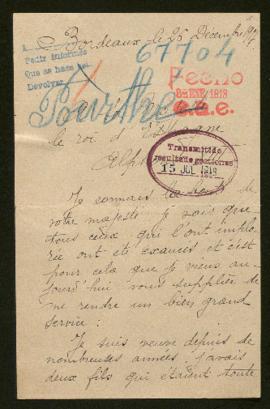 Bordeaux le 25 Décembre 1917
Pedir informes
Que se haga
Devolver
67704
Fecho
8 ENE. 1918
Pourthe
le roi d'Espagne
Alph
Transmitido
resultado gestiones
15 JUL 1918
Je connais la bonté de
votre majesté je sais que
tous ceux qui l'ont implo-
rée ont été exaucés et c'est
pour cela que je viens au-
jourd'hui vous supplier de
me rendre un bien grand
service :
Je suis veuve depuis de
nombreuses années j'avais
deux fils qui étaient toute